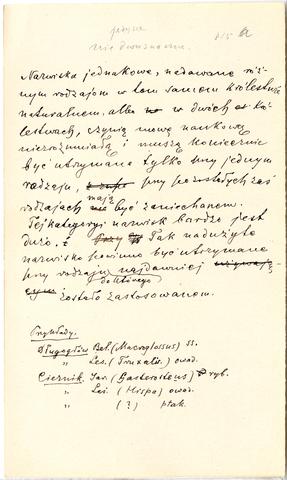 jedyne
nie dwuznaczne.
a
Nazwiska jednakowe, nadawane róż-
nym rodzajom w tem samem królestwie
naturalnem, albo w dwóch kró-
lestwach, czynią mowę naukową
niezrozumiałą i muszą koniecznie
być utrzymane tylko przy jednym
rodzaju, przy pozostałych zaś
rodzajach mają być zaniechanem.
Tej kategoryi nazwisk bardzo jest
dużo. Tak nadużyte
nazwisko powinno być utrzymane
przy rodzaju, do którego najdawniej
zostało zastosowanem.
Przykłady.
Długogłów Bel. (Macroglossus) ss.
" Les. (Truxalis) owad.
Ciernik. Jar. (Gasterosteus) ryb.
" Les. (Hispa) owad.
" (?) ptak.